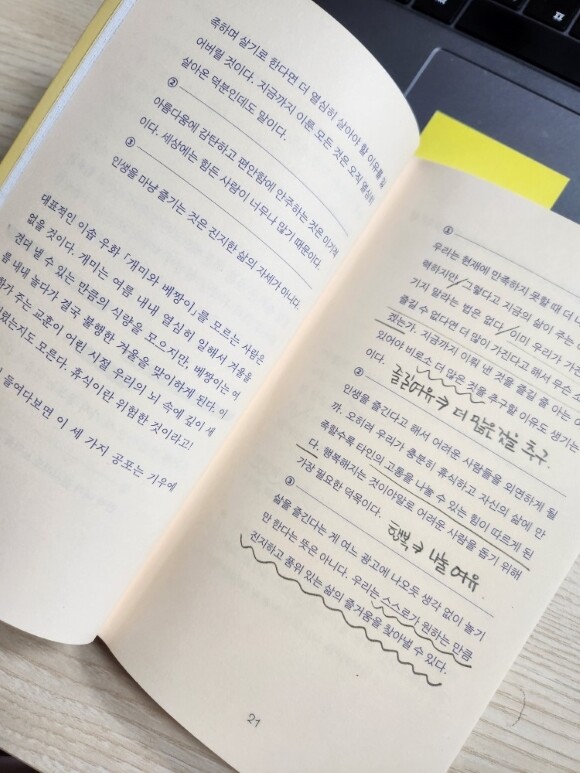 족하며 살기로 한다면 더 열심히 살아야 할 이유를 잃
어버릴 것이다. 지금까지 이룬 모든 것은 오직 열심히
살아온 덕분인데도 말이다.
②
아름다움에 감탄하고 편안함에 안주하는 것은 이기적
이다. 세상에는 힘든 사람이 너무나 많기 때문이다.
③
인생을 마냥 즐기는 것은 진지한 삶의 자세가 아니다.
대표적인 이솝 우화 『개미와 베짱이』를 모르는 사람은
없을 것이다. 개미는 여름 내내 열심히 일해서 겨울을
견뎌 낼 수 있는 만큼의 식량을 모으지만, 베짱이는 여
름 내내 놀다가 결국 불행한 겨울을 맞이하게 된다. 이
주는 교훈이 어린 시절 우리의 뇌 속에 깊이 새
었는지도 모른다. 휴식이란 위험한 것이라고!
들여다보면 이 세 가지 공포는 기우에
①
우리는 현재에 만족하지 못할 때 더 나
력하지만, 그렇다고 지금의 삶이 주는
가지 말라는 법은 없다. 이미 우리가 가진
즐길 수 없다면 더 많이 가진다고 해서 무슨 소
겠는가. 지금까지 이뤄 낸 것을 즐길 줄 아는
있어야 비로소 더 많은 것을 추구할 이유도 생기는
이다.
즐길여유 → 더 많은 것을 추구.
②
인생을 즐긴다고 해서 어려운 사람들을 외면하게 될
까. 오히려 우리가 충분히 휴식하고 자신의 삶에 만
족할수록 타인의 고통을 나눌 수 있는 힘이 따르게 된
다. 행복해지는 것이야말로 어려운 사람을 돕기 위해
가장 필요한 덕목이다.
행복 → 나눌 여유.
③
삶을 즐긴다는 게 여느 광고에 나오듯 생각 없이 놀기
만 한다는 뜻은 아니다. 우리는 스스로가 원하는 만큼
진지하고 품위 있는 삶의 즐거움을 찾아낼 수 있다.
21